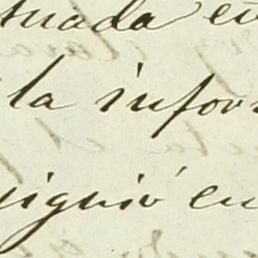 tuada en
la infor
siguió en